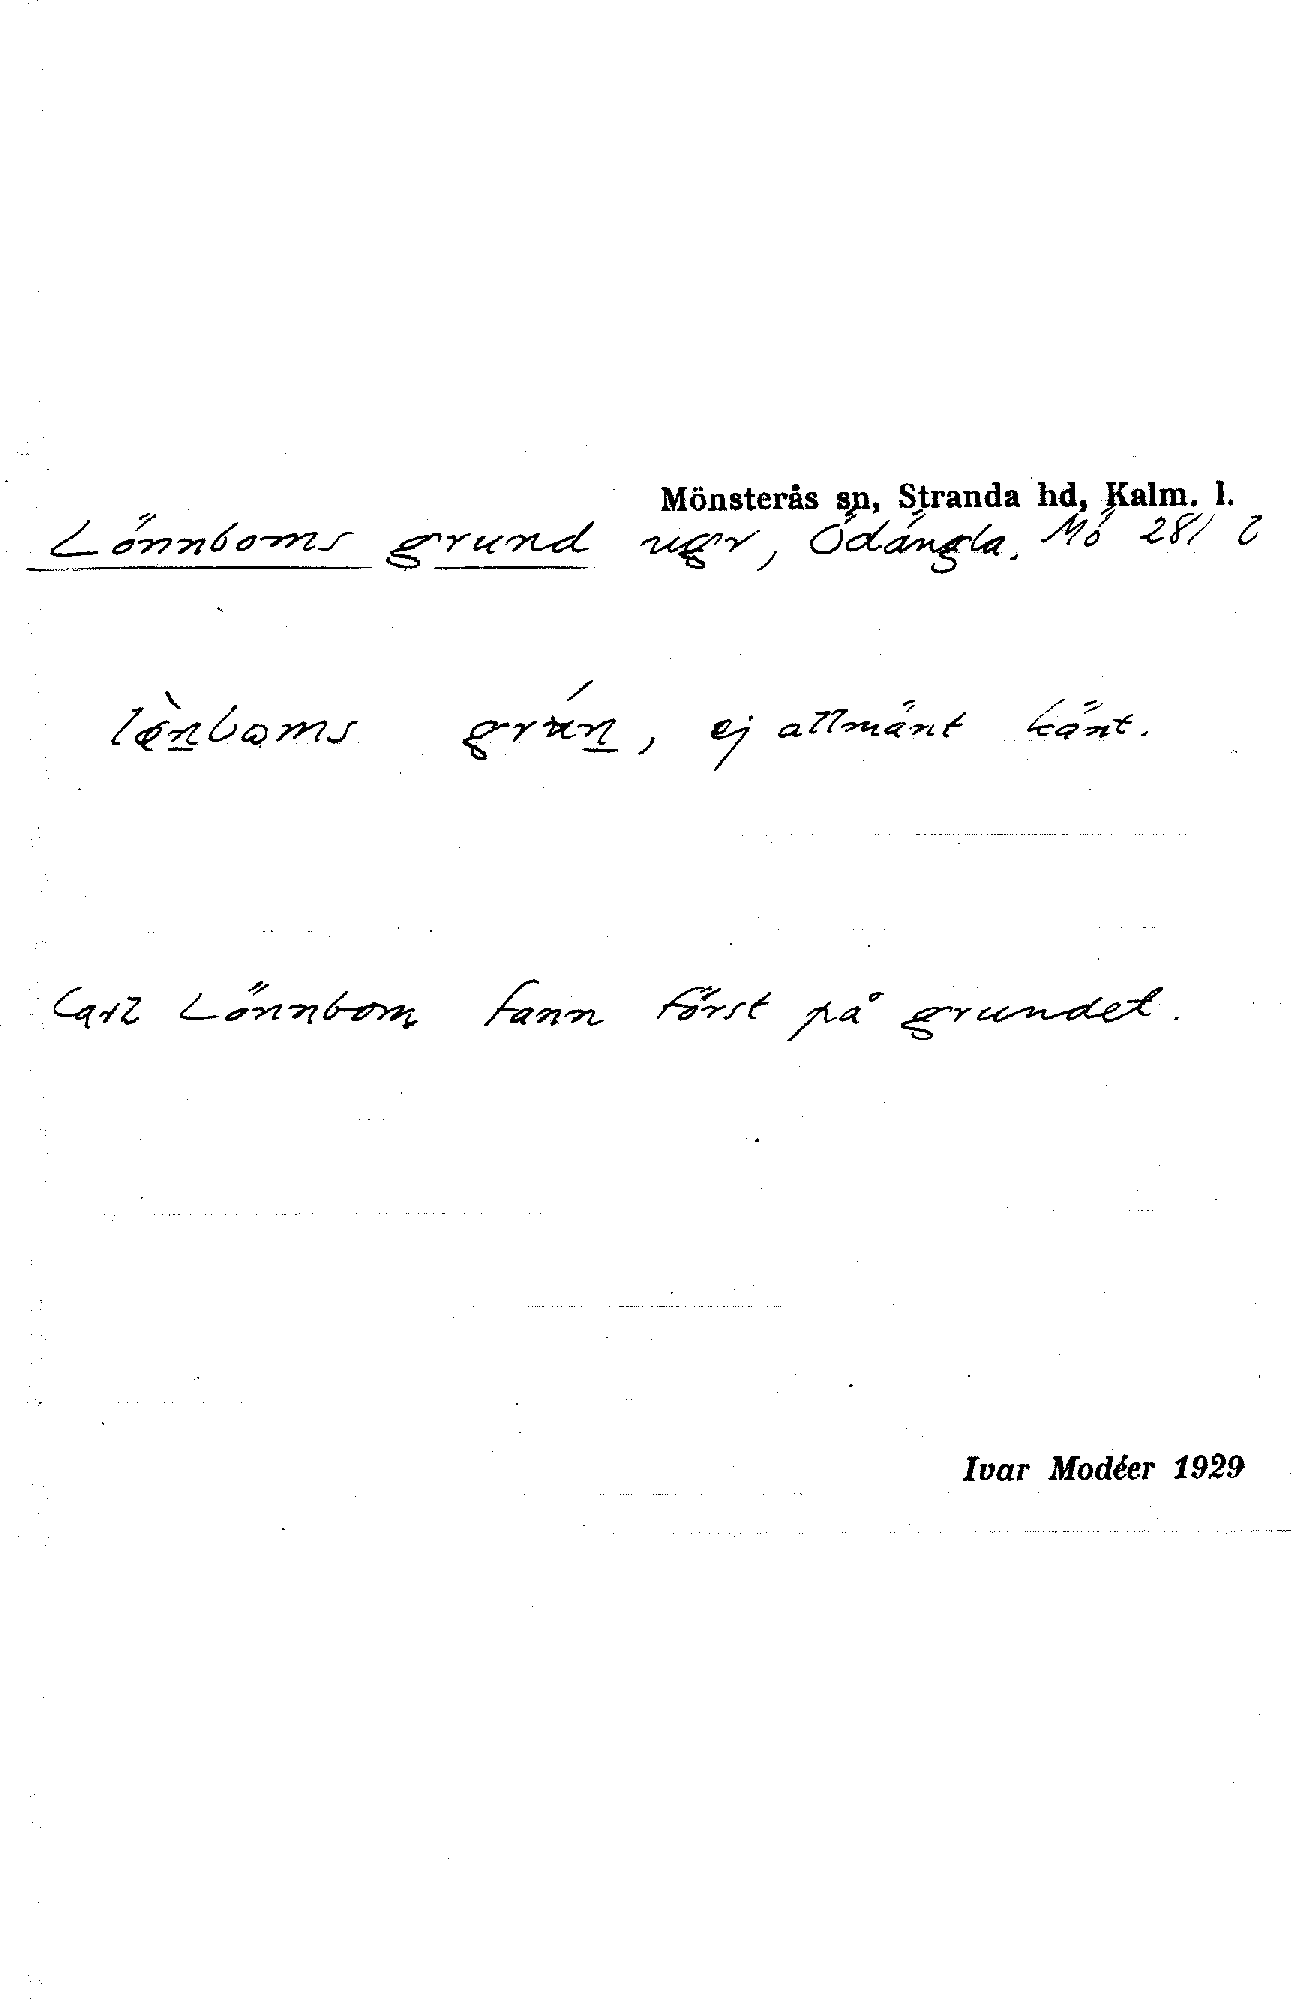 Mönsterås sn, Stranda hd, Kalm. l.
Lönnboms grund ugr, Ödängla. Mö 281
lònboms grún, ej allmänt känt.
Carl Lönnbom fann först på grundet.
Ivar Modéer 1929